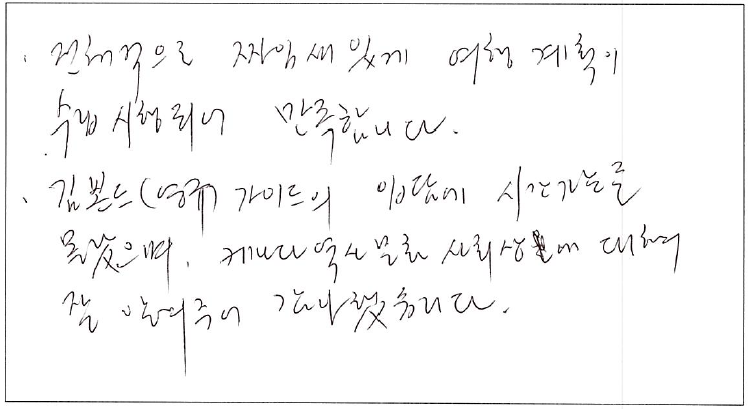 . 전체적으로 짜임새있게 여행 계획이
수립 시행되어 만족합니다.
. 김본드(영규) 가이드의 입담에 시간가는줄
몰랐으며, 캐나다 역사 문화 사회상에 대하여
잘 알려주어 감사했습니다.